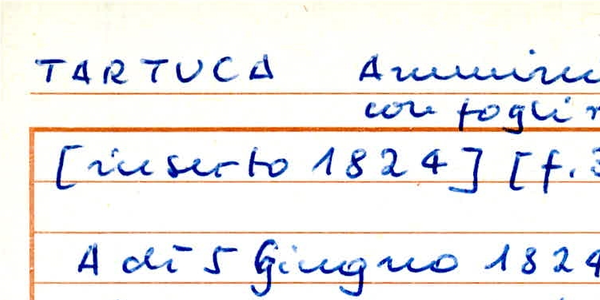 TARTUCA Ammini
con fogli
[inserto 1824] [f. 3
A dì 5 Giugno 1824